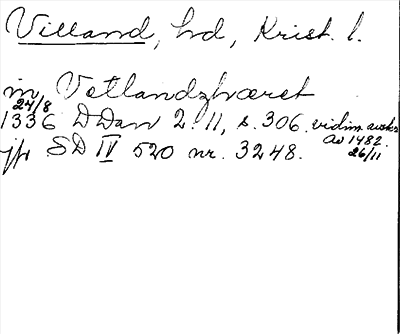 Villand, hd, Krist. l.
in Vetlandzhæret
24/8
1336 DDan 2. 11, s. 306. vidim avskr
av 1482
26/11
jfr SD IV 520 nr. 3248.